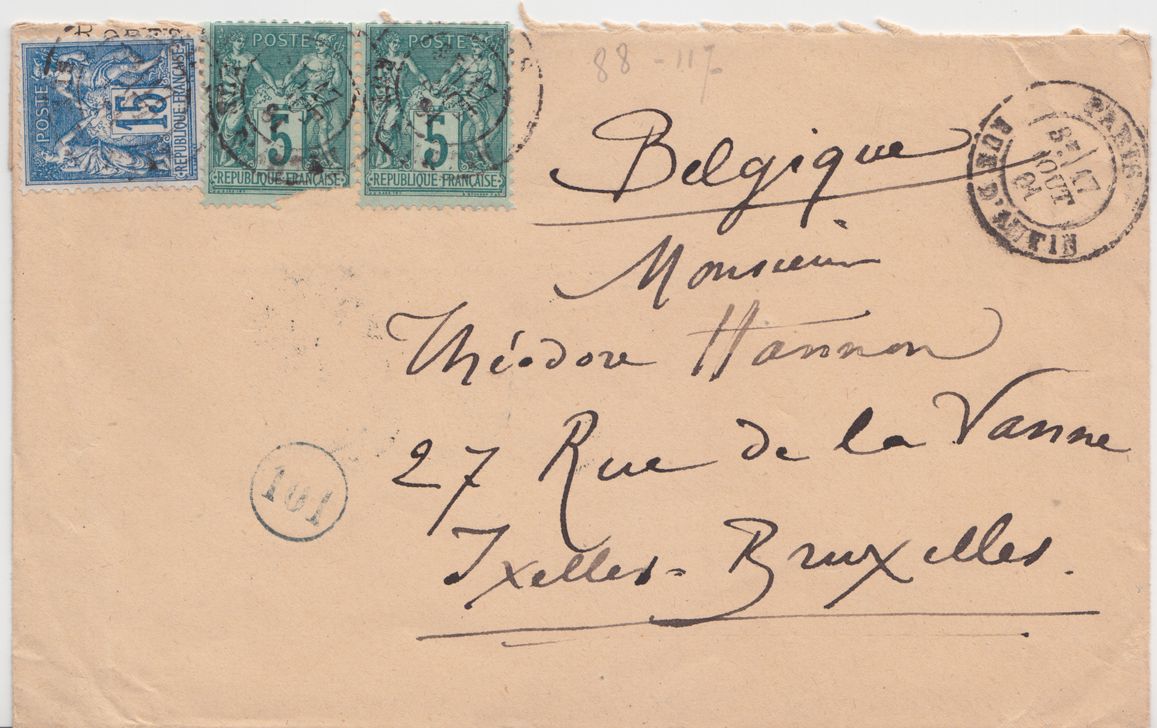 88-117
POSTE
15
REPUBLIQUE FRANÇAISE
POSTE
5
REPUBLIQUE FRANÇAISE
POSTE
5
REPUBLIQUE FRANÇAISE
PARIS
RUE D'ANTIN
8E 17
AOUT
81
Belgique
Monsieur
Théodore Hannon
27 Rue de la Vanne
Ixelles-Bruxelles.
101